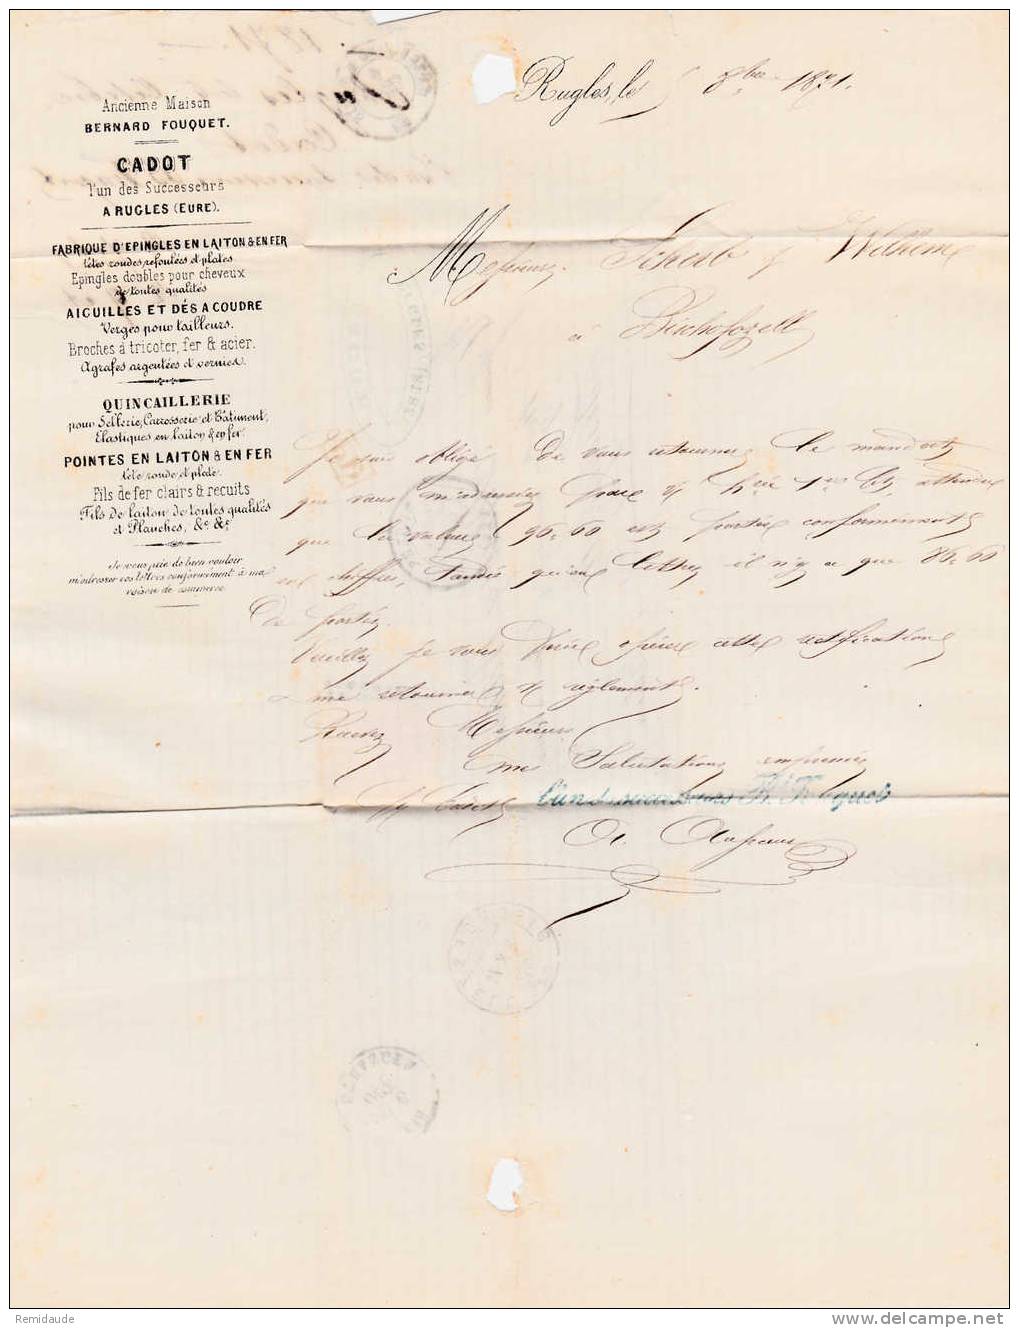 Ancienne Maison
BERNARD FOUQUET.
CADOT
l'un des Successeurs
A RUGLES (EURE).
FABRIQUE D'EPINGLES EN LAITON & EN FER
têtes rondes, refoulées et plates
Epingles doubles pour cheveux
de toutes qualités
AIGUILLES ET DÉS A COUDRE
Verges pour tailleurs.
Broches à tricoter, fer & acier.
Agrafes argentées et vernies.
QUINCAILLERIE
pour Sellerie, Carrosserie et Bâtiment,
Elastiques en laiton & en fer
POINTES EN LAITON & EN FER
tête ronde et plate.
Fils de fer clairs & recuits
Fils de laiton de toutes qualités
et Planches, &c. &c.
Je vous prie de bien vouloir
m'adresser vos lettres conformément à ma
raison de commerce.
Rugles, le 8bre 1871.
Messieurs Scherb & Wilhelme
à Bischofszell
Je suis obligé de vous retourner le mandat
que vous m'adressiez pour attendu
que la valeur 96.60 est portée conformément
en chiffres, tandis qu'en lettres il n'y a que 86.60
de portés.
Veuillez je vous prie opérer cette rectification
& me retourner le règlement.
Recevez Messieurs
mes Salutations empressées
L'un des successeurs Bd Fouquet